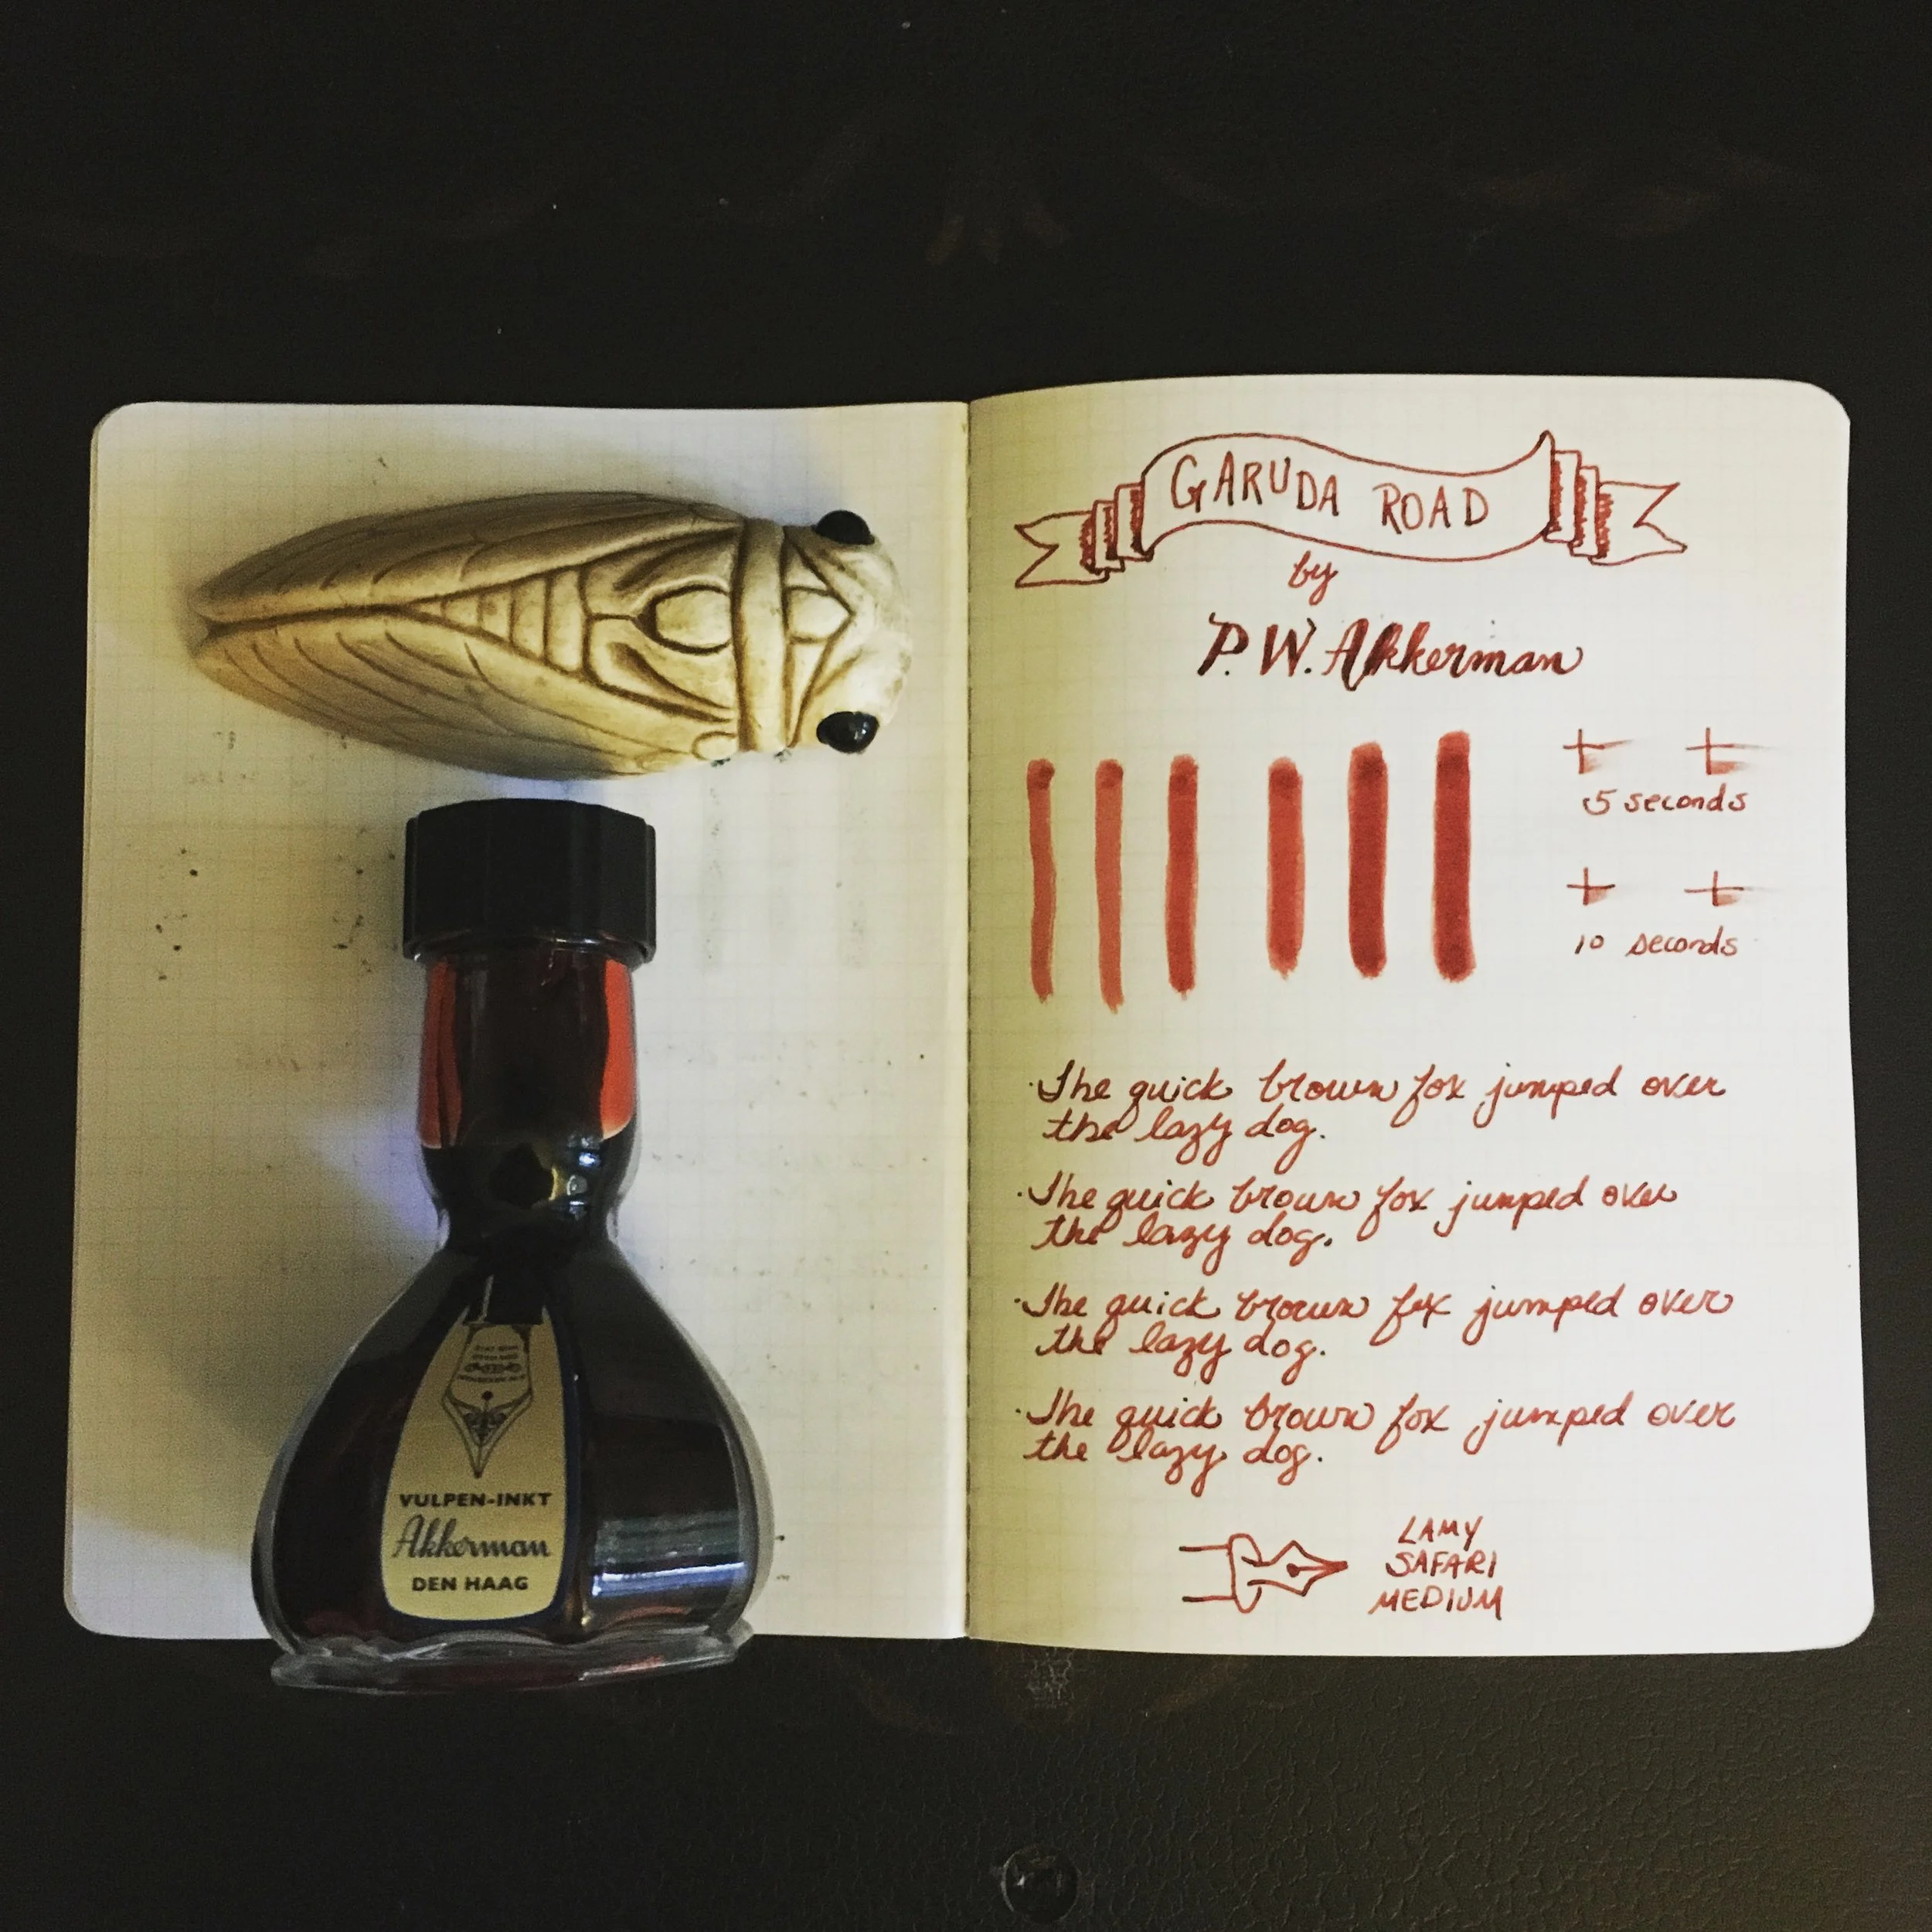 VULPEN-INKT
Akkerman
DEN HAAG
GARUDA ROAD
by
P.W. Akkerman
5 seconds
10 seconds
The quick brown fox jumped over
the lazy dog.
The quick brown fox jumped over
the lazy dog.
The quick brown fox jumped over
the lazy dog.
The quick brown fox jumped over
the lazy dog.
LAMY
SAFARI
MEDIUM